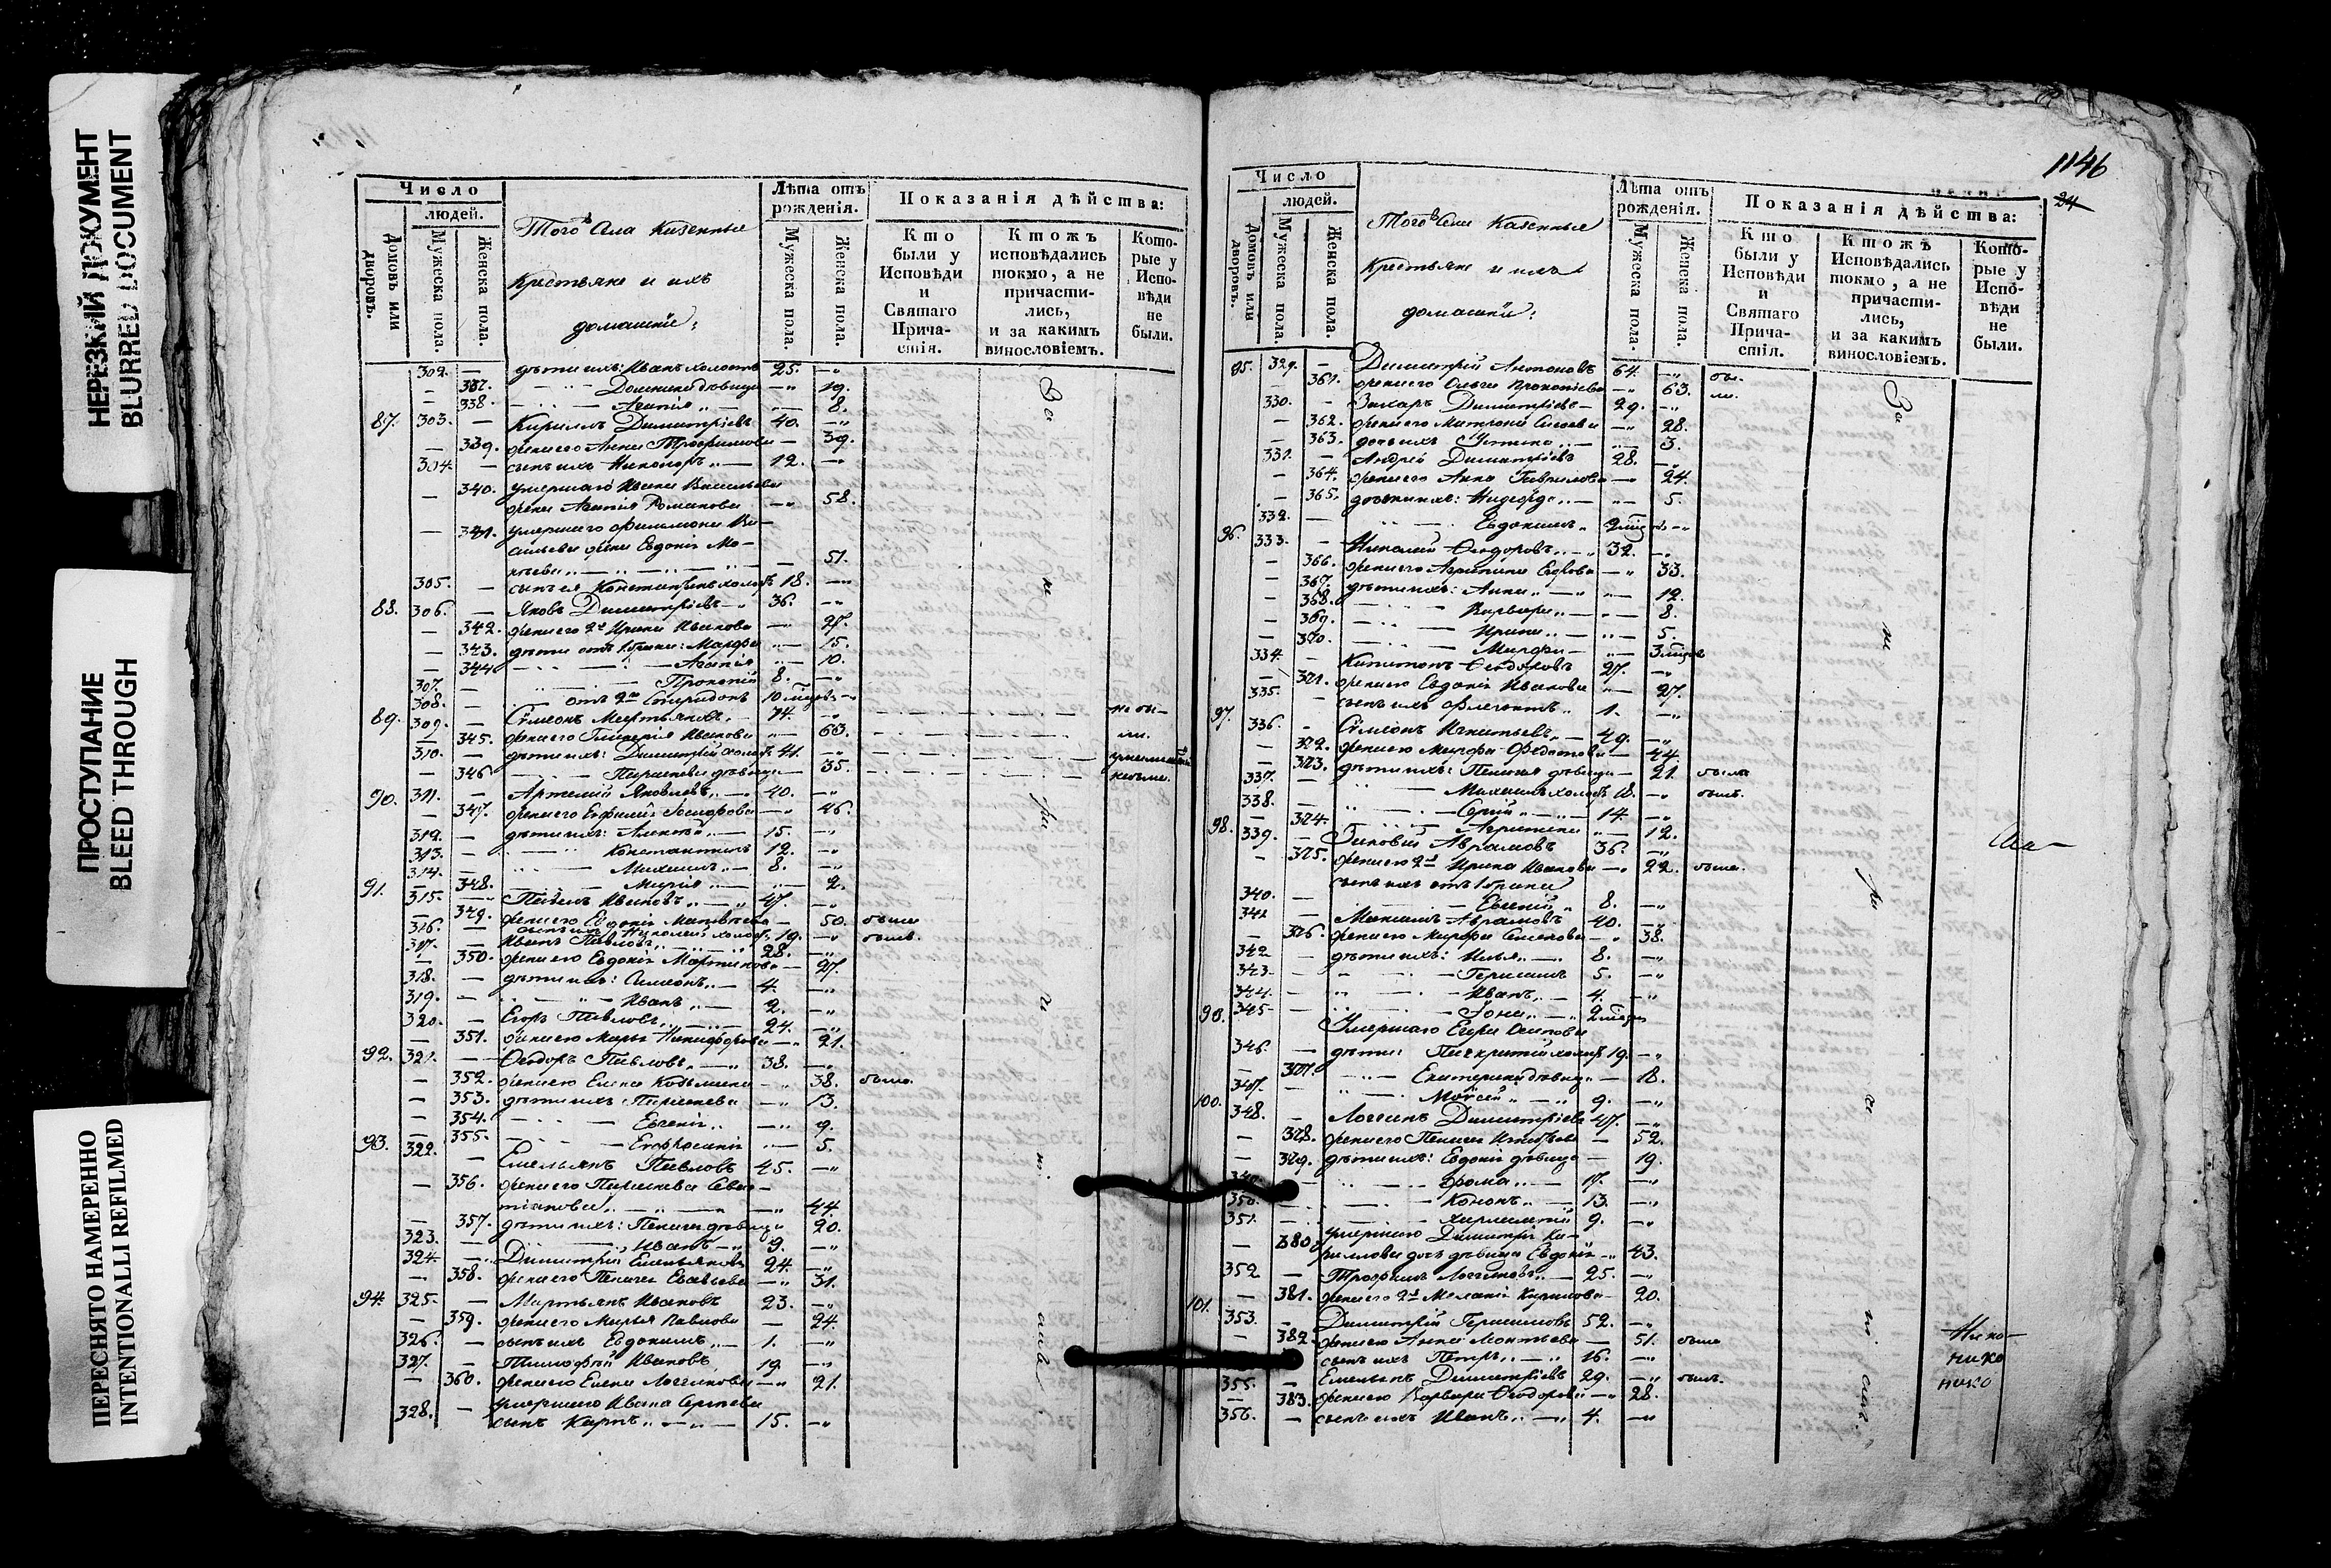 НЕРЕЗКИЙ ДОКУМЕНТ
BLURRED DOCUMENT
ПРОСТУПАНИЕ
BLEED THROUGH
ПЕРЕСНЯТО НАМЕРЕННО
INTENTIONALLI REFILMED
Число
людей.
Домовъ или дворовъ.
Мужеска пола.
Женска пола.
Того Села Казенные
Крестьяне и ихъ
домашніе:
Лѣта отъ рожденія.
Мужеска пола.
Женска пола.
Показанія дѣйства:
Кто были у Исповѣди и Святаго Причастія.
Ктожъ исповѣдались токмо, а не причастились, и за какимъ винословіемъ.
Которые у Исповѣди не были.
302. — дѣти ихъ: Иванъ холостъ 25.
337. Домника дѣвица 19.
338. Агапія 8.
87. 303. Кириллъ Димитріевъ 40.
339. жена его Анна Трофимова 39.
304. сынъ ихъ Никаноръ 12.
340. умершаго Ивана Васильева
жена Агапія Романова 58.
341. умершаго Филимона Ва-
сильева жена Евдокія Мо-
51.
305. сынъ ея Константинъ холостъ 18.
88. 306. Яковъ Димитріевъ 36.
342. жена его 2я Ирина Иванова 27.
343. дѣти отъ 1 брака: Марфа 15.
344 Агапія 10.
307. Прокопій 8.
308. отъ 2го Спиридонъ 10 мѣсяцовъ
89. 309. Симеонъ 74. не бы-
345. жена его Гликерія Иванова 63. ли.
310. дѣти ихъ: Димитрій холостъ 41.
346 Параскева дѣвица 35.
90. 311. Артемій Яковлевъ 40.
347. жена его Евфимія 46.
312. дѣти ихъ: Алексѣй 15.
313. Константинъ 12.
314. Михаилъ 8.
348. Марія 2.
91. 315. Павелъ Ивановъ 47.
349. жена его Евдокія Матвѣева 50. была
316. сынъ ихъ Николай холостъ 19. былъ.
317. Иванъ Павловъ 28.
350. жена его Евдокія Мартинова 27.
318. дѣти ихъ: Симеонъ 4.
319. Иванъ 2.
320. Егоръ Павловъ 24.
351. жена его Марья Никифорова 21.
92. 321. Ѳеодоръ Павловъ 38.
352. жена его Елена Козьмина 38. была.
353. дѣти ихъ Параскева 13.
354. Евгенія 9.
355. Евфросинія 5.
93. 322. Емельянъ Павловъ 45.
356. жена его Параскева Севас-
тіанова 44.
357. дѣти ихъ: Пелагея дѣвица 20.
323. Иванъ 9.
324. Димитрій Емельяновъ 24.
358. жена его Пелагея 31.
94. 325. Мартьянъ Ивановъ 23.
359. жена его Марья Павлова 24.
326. сынъ ихъ Евдокимъ 1.
327. Тимофѣй Ивановъ 19.
360. жена его Елена Логгинова 21.
умершаго Ивана Сергѣева
328. сынъ Карпъ 15.
1146
24
Число
людей.
Домовъ или дворовъ.
Мужеска пола.
Женска пола.
Того Села Казенные
Крестьяне и ихъ
домашніе:
Лѣта отъ рожденія.
Мужеска пола.
Женска пола.
Показанія дѣйства:
Кто были у Исповѣди и Святаго Причастія.
Ктожъ Исповѣдались токмо, а не причастились, и за какимъ винословіемъ.
Которые у Исповѣди не были.
95. 329. Димитрій Антоновъ 64. бы-
361. жена его Ольга Прокопіева 63. ли.
330. Захаръ Димитріевъ 29.
362. жена его Матрона 28.
363. дочь ихъ Устина 3.
331. Андрей Димитріевъ 28.
364. жена его Анна Гаврилова 24.
365. дѣти ихъ: Надежда 5.
332. Евдокимъ
96. 333. Николай Ѳеодоровъ 32.
366. жена его Агрипина 33.
367. дѣти ихъ: Анна 12.
368. Варвара 8.
369. Ирина 5.
370. Марфа
334. Капитонъ Ѳеодоровъ 27.
371. жена его Евдокія Иванова 27.
335. сынъ ихъ Флегонтъ 1.
97. 336. Симеонъ Игнатьевъ 49.
372. жена его Марфа 44.
373. дѣти ихъ: Пелагея дѣвица 21. была
337. Михаилъ холостъ 18. былъ.
338. Сергій 14.
374. Агрипина 12.
98. 339. Зиновій Аврамовъ 36.
375. жена его 2я Ирина Иванова 22. была.
сынъ ихъ отъ 1 брака
340. Евгеній 8.
341 Максимъ Аврамовъ 40.
376. жена его Марфа Семенова 38.
342 дѣти ихъ: Илья 8.
343 Герасимъ 5.
344. Иванъ 4.
345 Іона
Умершаго Егора Осипова
346. дѣти: Панкратій холостъ 19.
377. Екатерина дѣвица 18.
347. Моисей 9.
100. 348. Логгинъ Димитріевъ 47.
378. жена его Пелагея 52.
379. дѣти ихъ: Евдокія дѣвица 19.
349. Ѳома 17.
350. Кононъ 13.
351. Харлампій 9.
380. умершаго Димитрія Ки-
риллова дочь дѣвица Евдокія 43.
352 Трофимъ Логгиновъ 25.
381. жена его 2я Меланія Кирилова 20.
101. 353. Димитрій Герасимовъ 52.
382. жена его Анна 51. была
сынъ ихъ Петръ 16.
355. Емельянъ Димитріевъ 29. былъ.
383. жена его Варвара Ѳеодорова 28.
356. сынъ ихъ Иванъ 4.